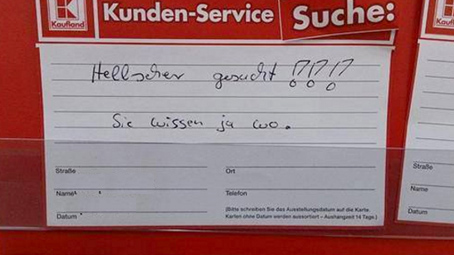 Kaufland
Kunden-Service
Suche:
Hellseher gesucht !!!!
Sie wissen ja wo.
Straße
Ort
Name
Telefon
Datum
(Bitte schreiben Sie das Ausstellungsdatum auf die Karte.
Karten ohne Datum werden aussortiert – Aushangzeit 14 Tage.)